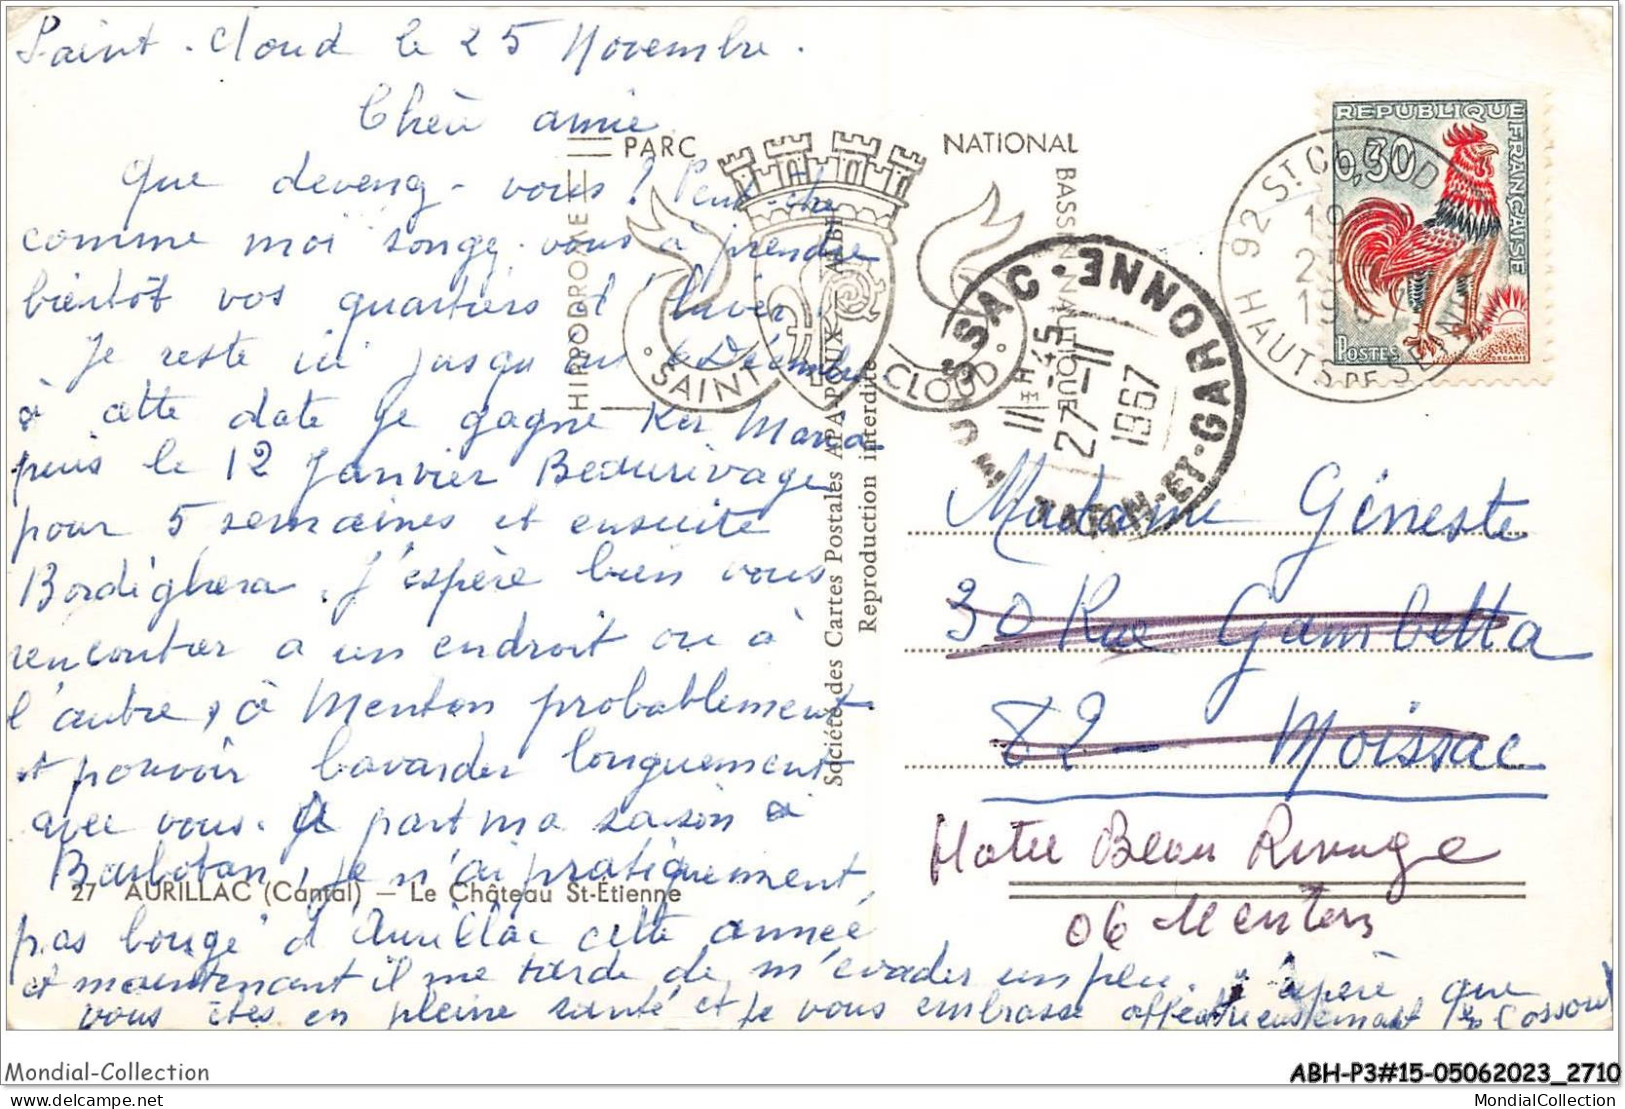 Saint-Cloud le 25 Novembre.
Chère amie
Que devenez-vous? Peut-être
comme moi songez-vous à prendre
bientôt vos quartiers d'hiver?
Je reste ici jusqu'au 6 Décembre
à cette date je gagne Ker Maria
puis le 12 Janvier Beaurivage
pour 5 semaines et ensuite
Bordighera. J'espère bien vous
rencontrer a un endroit ou à
l'autre, à Menton probablement
et pouvoir bavarder longuement
avec vous. A part ma saison à
Barbotan, je n'ai pratiquement
pas bougé d'Aurillac cette année
et maintenant il me tarde de m'évader un peu. J'espère que
vous êtes en pleine santé et je vous embrasse affectueusement
27 AURILLAC (Cantal) — Le Château St-Étienne
Société des Cartes Postales APA-POUX — ALBI
Reproduction interdite
PARC NATIONAL
HIPPODROME
BASSIN NAUTIQUE
SAINT CLOUD
MOISSAC
TARN-ET-GARONNE
H -45
27-11
1967
92 ST CLOUD
HAUTS DE SEINE
REPUBLIQUE FRANÇAISE
0,30
POSTES
DECARIS
Madame Géneste
30 Rue Gambetta
82 - Moissac
Hotel Beau Rivage
06 Menton
Mondial-Collection
ABH-P3#15-05062023_2710
delcampe.net
MondialCollection